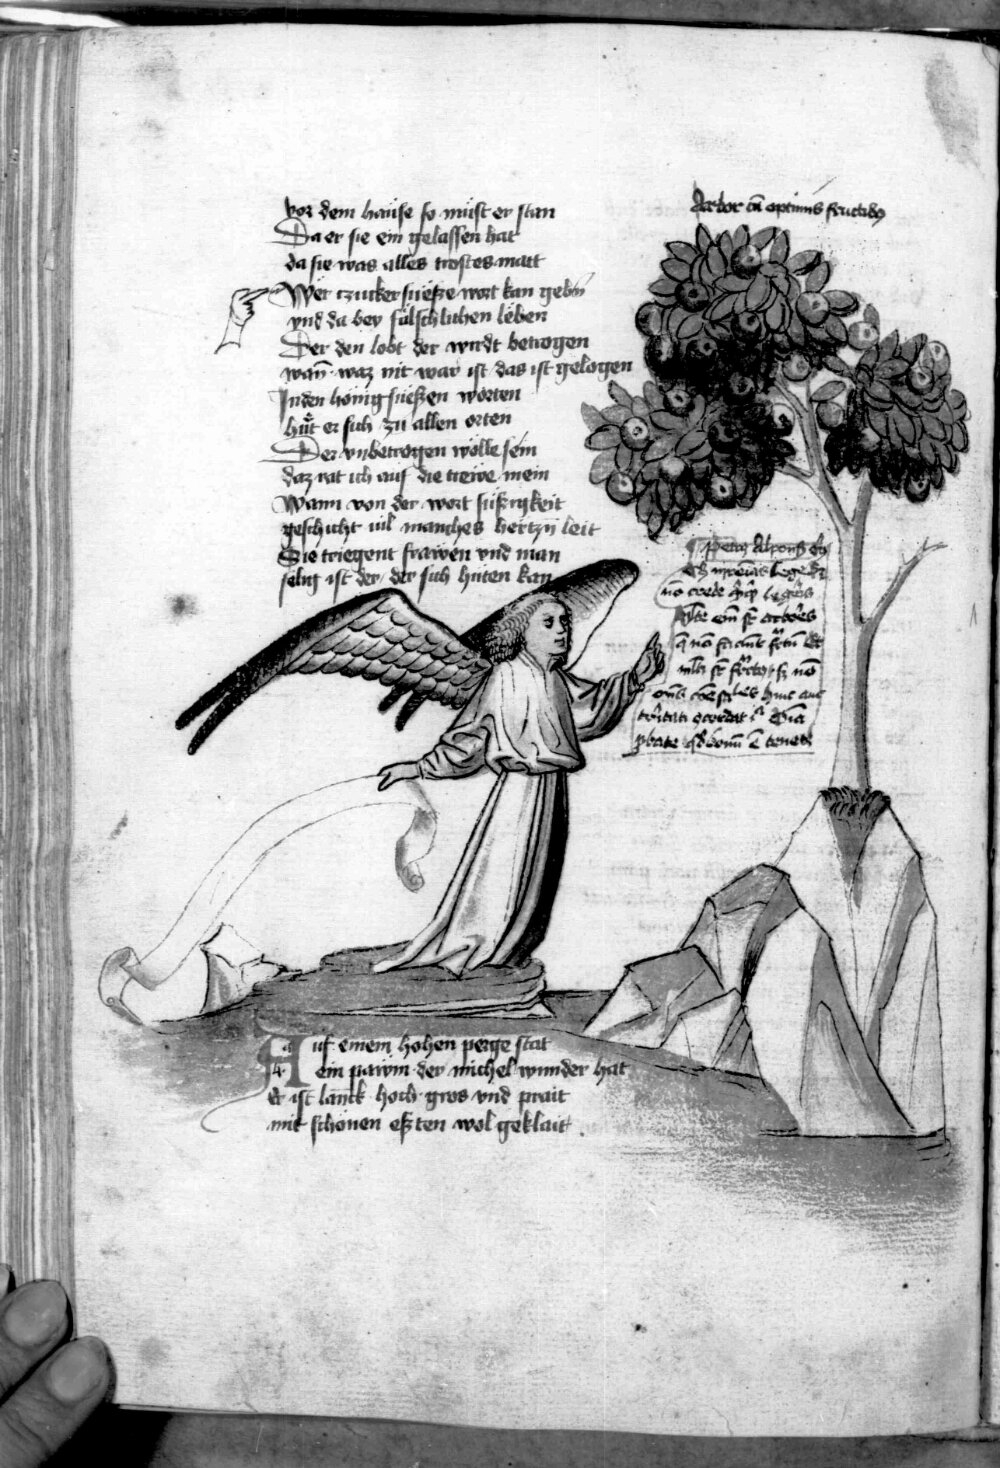 vor dem hause so must er stan
Da er sie ein gelassen hat
da sie was alles trostes matt
Wer zuker suesze wort kan geben
vnd da bey fälschlichen leben
Der den lobt der wirdt betrogen
wann waz nit war ist das ist gelogen
In den hönig süeszen worten
hüt er sich zu allen orten
Der vnbetrogen wölle sein
daz rat ich auf die trewe mein
Wann von der wort süszigkeit
geschicht vil manches hertzn leit
Sie triegent frawen vnd man
selig ist der der sich hüten kan
Arbor cū optimis fructibȝ
Petrȝ Alfonsȝ
nō crede
q̄ nō faciunt
nō
pbate qd bonū ē tenete
Auf einem hohen perge stat
ein pawm der michel wunder hat
Er ist lanck hoch gros vnd prait
mit schönen esten wol geklait